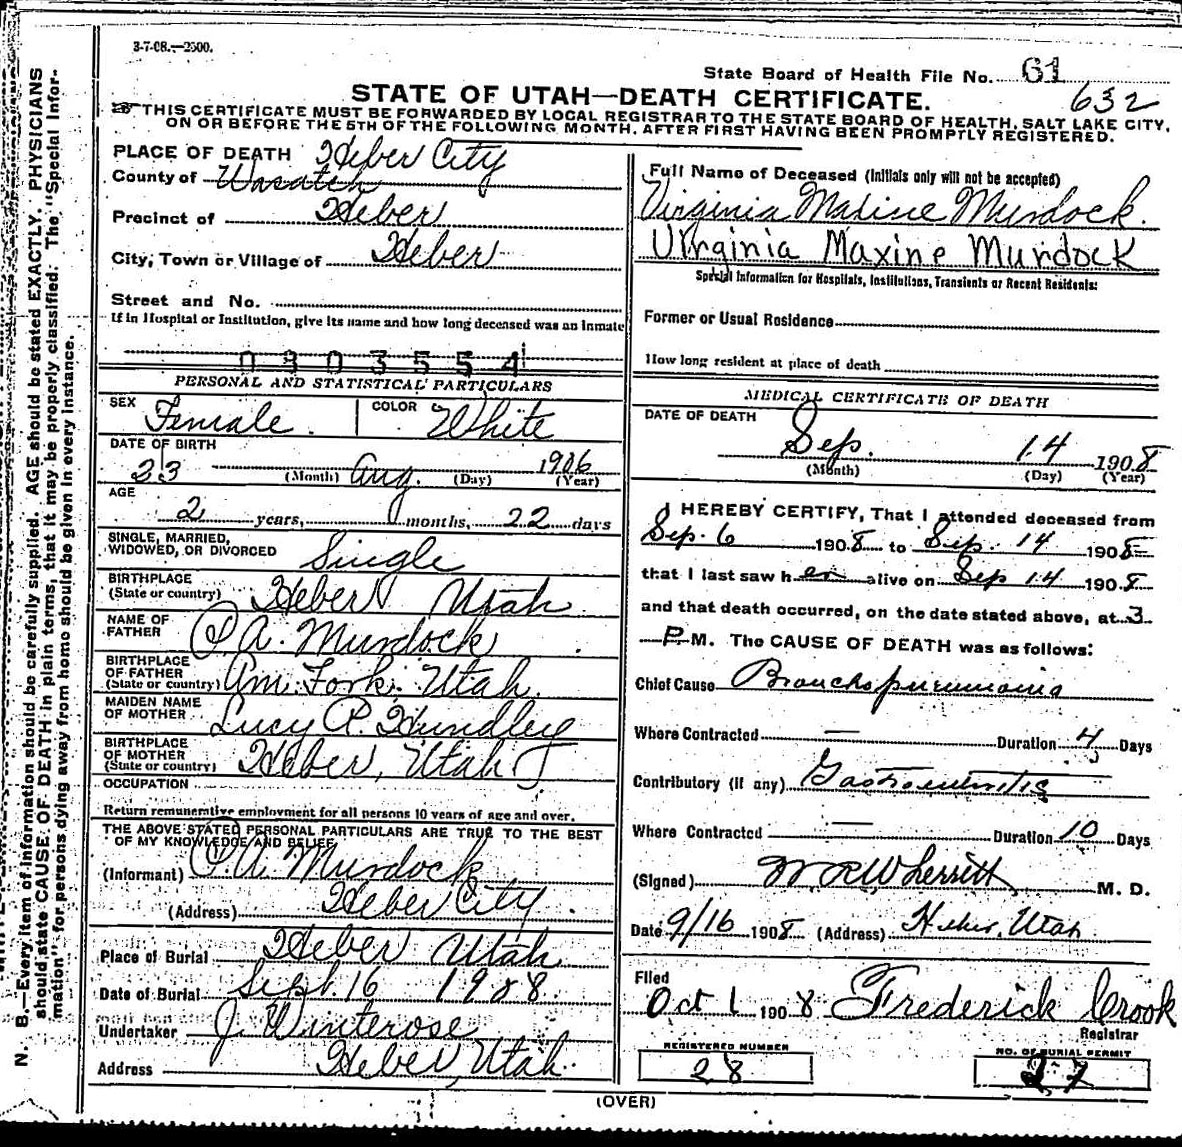 3-7-08.—2500.
State Board of Health File No. 61
632
STATE OF UTAH—DEATH CERTIFICATE.
THIS CERTIFICATE MUST BE FORWARDED BY LOCAL REGISTRAR TO THE STATE BOARD OF HEALTH, SALT LAKE CITY,
ON OR BEFORE THE 5TH OF THE FOLLOWING MONTH, AFTER FIRST HAVING BEEN PROMPTLY REGISTERED.
PLACE OF DEATH Heber City
County of Wasatch
Precinct of Heber
City, Town or Village of Heber
Street and No.
If in Hospital or Institution, give its name and how long deceased was an inmate
0803554
PERSONAL AND STATISTICAL PARTICULARS
SEX Female. COLOR White
DATE OF BIRTH
23 (Month) Aug. (Day) 1906 (Year)
AGE
2 years, months, 22 days
SINGLE, MARRIED,
WIDOWED, OR DIVORCED Single
BIRTHPLACE
(State or country) Heber Utah
NAME OF
FATHER P. A. Murdock
BIRTHPLACE
OF FATHER
(State or country) Am. Fork, Utah.
MAIDEN NAME
OF MOTHER Lucy P. Hundley
BIRTHPLACE
OF MOTHER
(State or country) Heber, Utah
OCCUPATION
Return remunerative employment for all persons 10 years of age and over.
THE ABOVE STATED PERSONAL PARTICULARS ARE TRUE TO THE BEST
OF MY KNOWLEDGE AND BELIEF
(Informant) P. A. Murdock
(Address) Heber City.
Place of Burial Heber Utah
Date of Burial Sept. 16 1908.
Undertaker J. Winterose
Address Heber, Utah.
Full Name of Deceased (Initials only will not be accepted)
Virginia Maxine Murdock.
Virginia Maxine Murdock
Special Information for Hospitals, Institutions, Transients or Recent Residents:
Former or Usual Residence
How long resident at place of death
MEDICAL CERTIFICATE OF DEATH
DATE OF DEATH
Sep. 14 1908
(Month) (Day) (Year)
I HEREBY CERTIFY, That I attended deceased from
Sep. 6 1908 to Sep. 14 1908
that I last saw her alive on Sep 14 1908
and that death occurred, on the date stated above, at 3
P M. The CAUSE OF DEATH was as follows:
Chief Cause Bronchopneumonia
Where Contracted — Duration 4 Days
Contributory (if any) Gastroenteritis
Where Contracted — Duration 10 Days
(Signed) W R Wherritt M. D.
Date 9/16 1908 (Address) Heber, Utah
Filed
Oct 1 1908 Frederick Crook
Registrar
REGISTERED NUMBER
28
NO. OF BURIAL PERMIT
27
(OVER)
N. B.—Every item of information should be carefully supplied. AGE should be stated EXACTLY. PHYSICIANS
should state CAUSE OF DEATH in plain terms, that it may be properly classified. The "Special Infor-
mation" for persons dying away from home should be given in every instance.